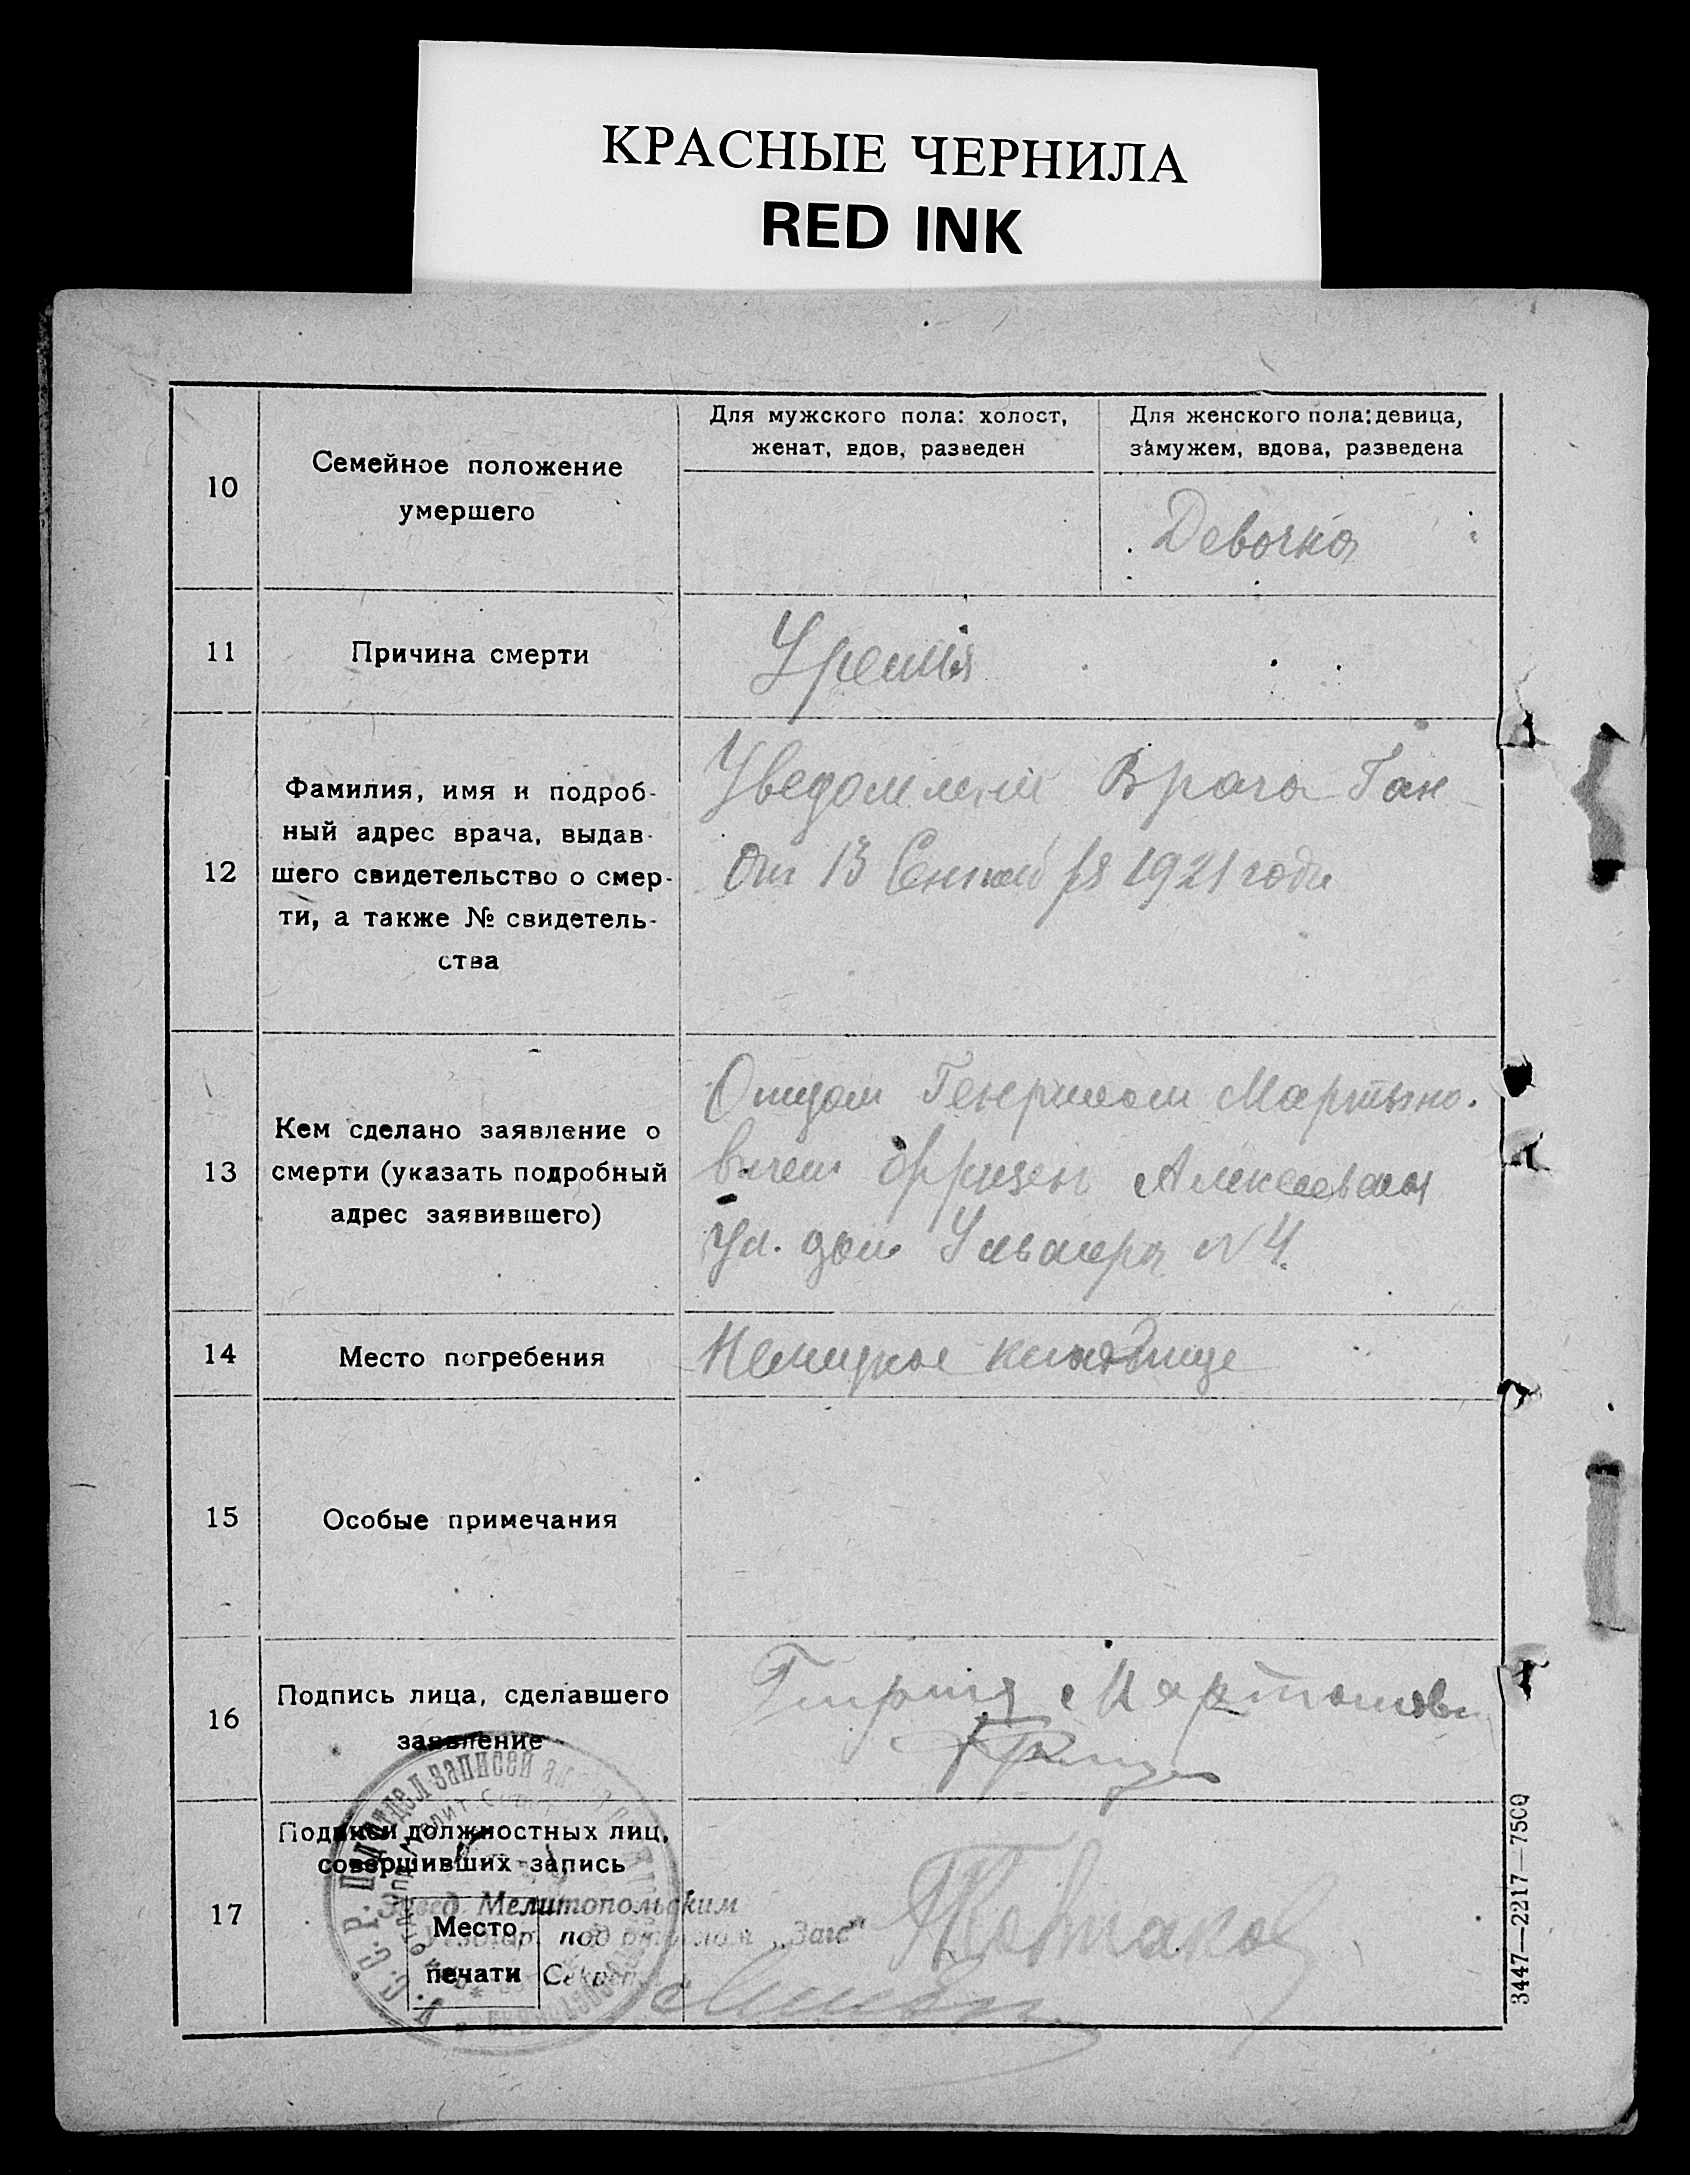 КРАСНЫЕ ЧЕРНИЛА
RED INK
10
Семейное положение
умершего
Для мужского пола: холост,
женат, вдов, разведен
Для женского пола: девица,
замужем, вдова, разведена
Девочка
11
Причина смерти
Уремія
12
Фамилия, имя и подроб-
ный адрес врача, выдав-
шего свидетельство о смер-
ти, а также № свидетель-
ства
Уведомленій Врача Ган
От 13 Сентября 1921 года
13
Кем сделано заявление о
смерти (указать подробный
адрес заявившего)
Отцом Генрихом Мартыно-
вичем Фризен Алексеевская
ул. дом N 4.
14
Место погребения
Немецкое кладбище
15
Особые примечания
16
Подпись лица, сделавшего
заявление
17
Подписи должностных лиц,
совершивших запись
Завед. Мелитопольским
под отделом „Загс"
Место
печати
Секрет
3447—2217—75CQ